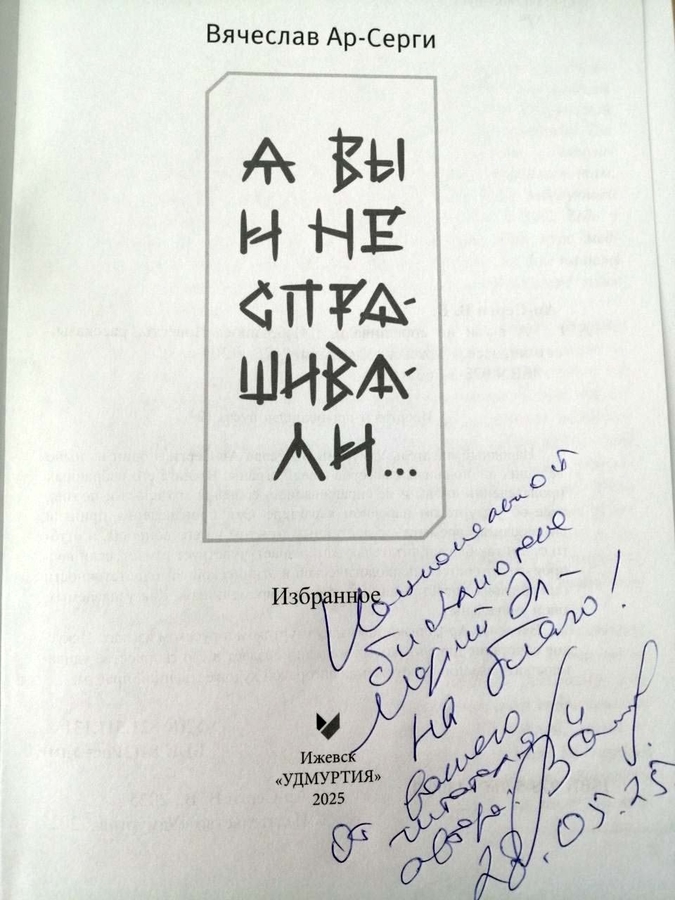 Вячеслав Ар-Серги
А ВЫ
И НЕ
СПРА-
ШИВА-
ЛИ...
Избранное
Ижевск
«УДМУРТИЯ»
2025
Национальной
библиотеке
Марий Эл –
на благо!
От вашего
читателя и
автора:
28.05.25.